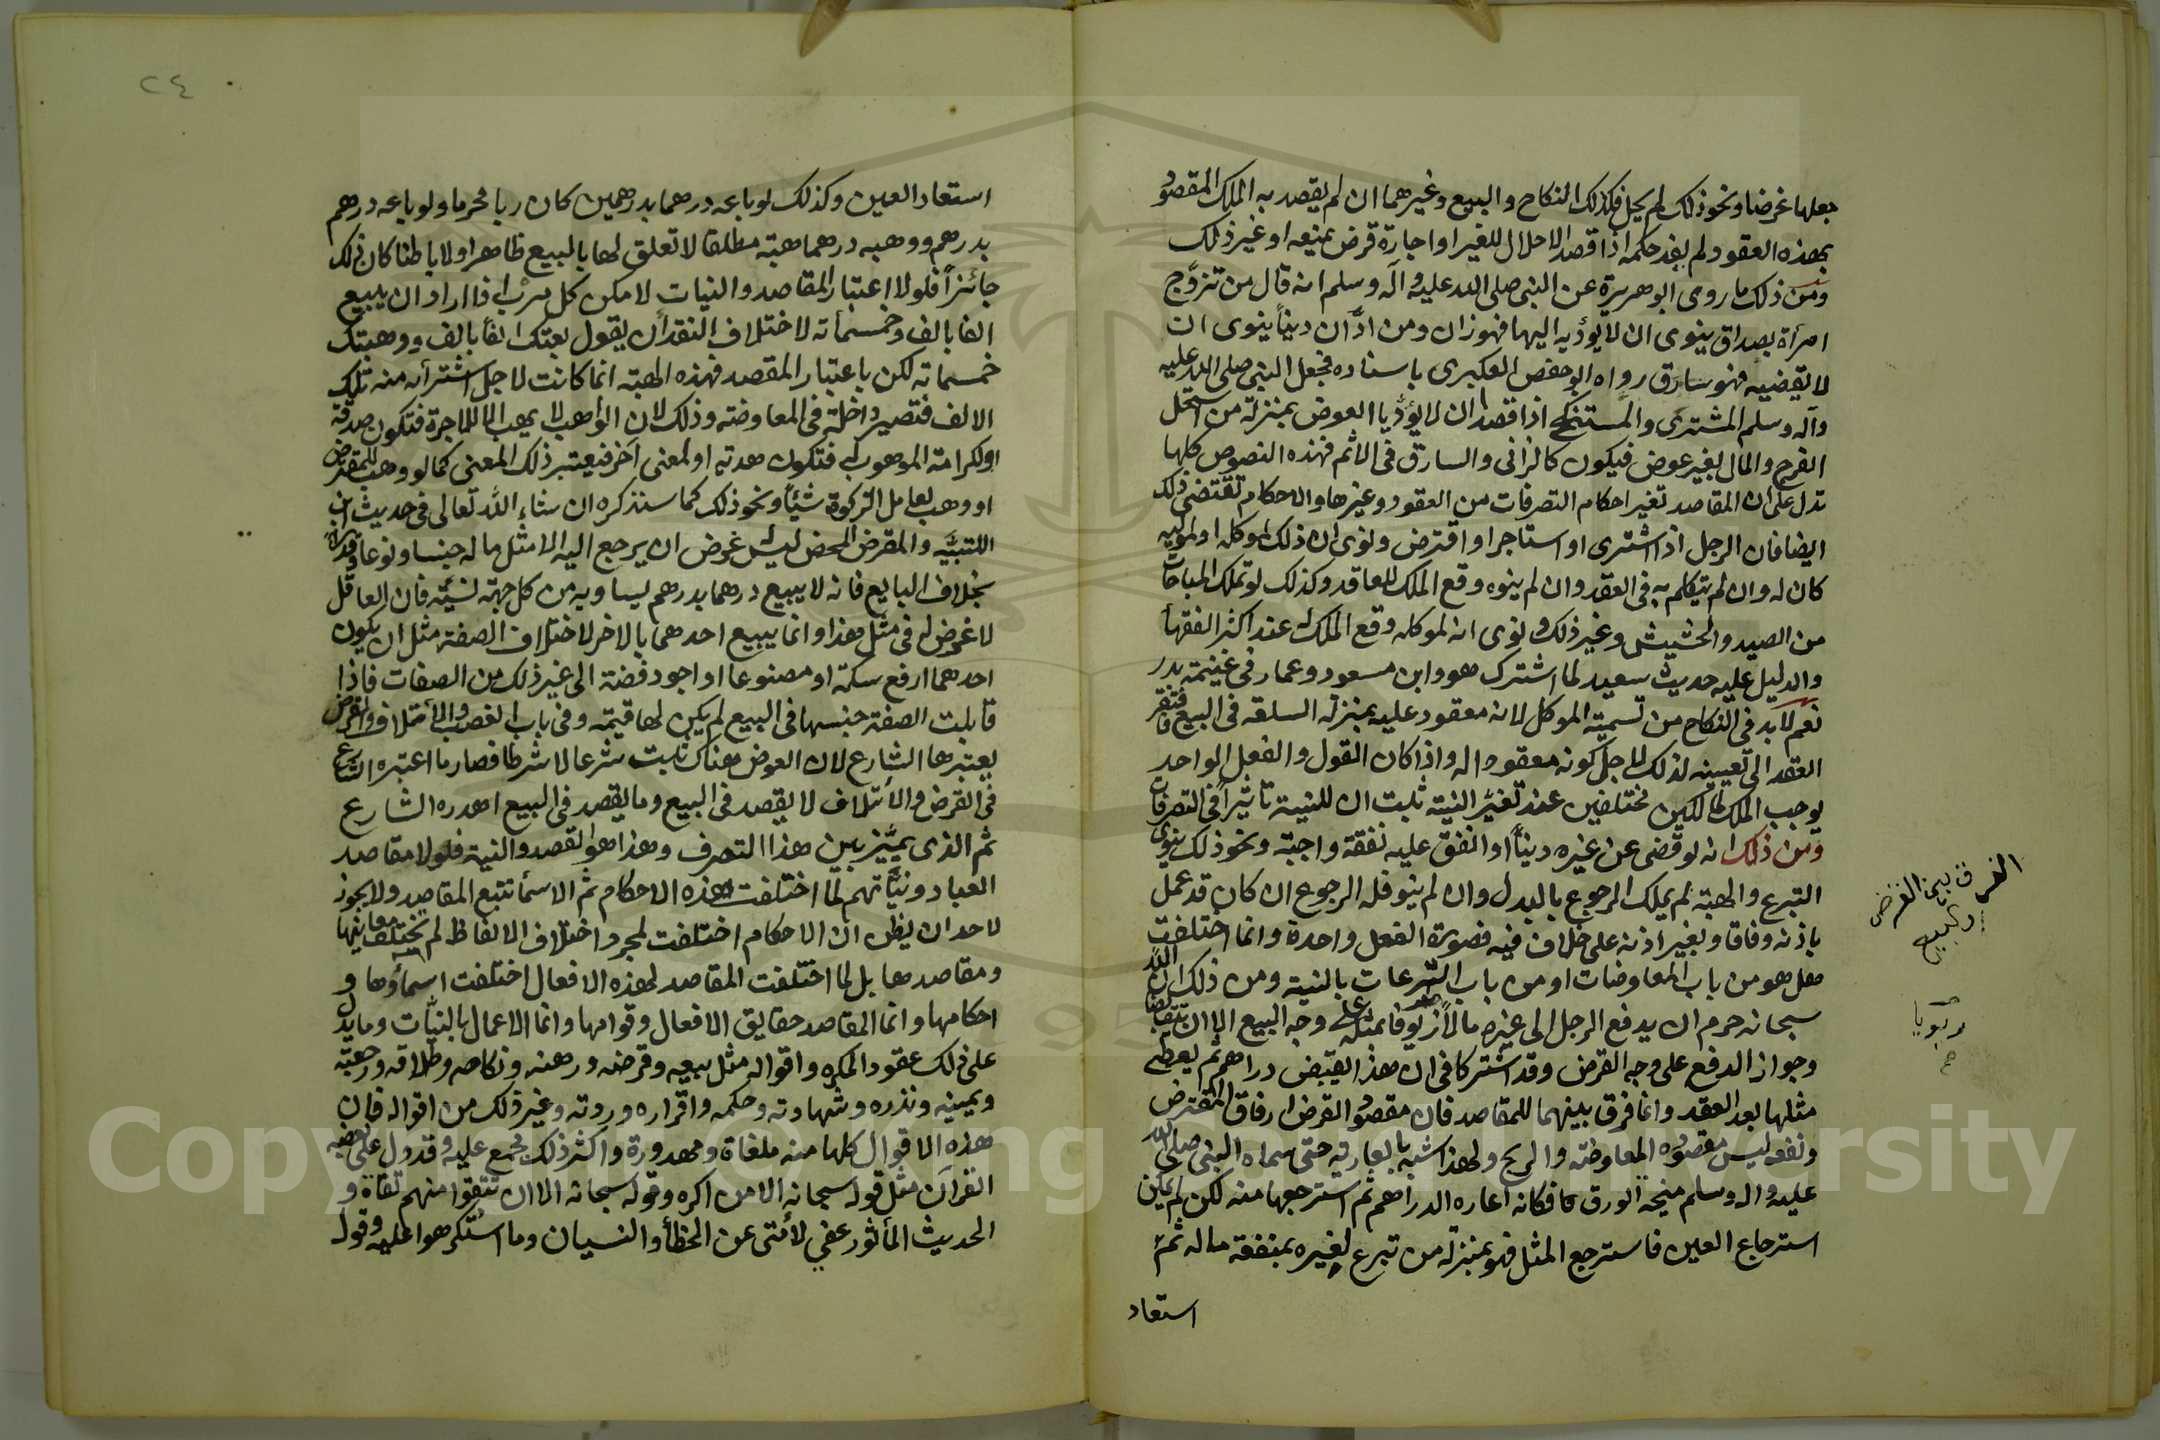 جعلها غرضا ونحو ذلك لم يحل فكذلك النكاح والبيع وغيرهما ان لم يقصد به الملك المقصود
بهذه العقود ولم يفد حكمه اذا قصد الاحلال للغير او اجازة قرض بمنيعه او غير ذلك
ومن ذلك ما روى ابو هريرة عن النبي صلى الله عليه وآله وسلم انه قال من تزوّج
امرأة بصداق ينوى ان لا يؤديه اليها فهو زان ومن ادّان ديناً ينوى ان
لا يقضيه فهو سارق رواه ابو حفص العكبرى باسناده فجعل النبي صلى الله عليه
وآله وسلم المشترى والمستنكح اذا قصدا ان لا يؤديا العوض بمنزلة من استحل
الفرج والمال بغير عوض فيكون كالزانى والسارق فى الاثم فهذه النصوص كلها
تدل على ان المقاصد تغير احكام التصرفات من العقود وغيرها والاحكام تقتضى ذلك
ايضا فان الرجل اذا اشترى او استاجر او اقترض ونوى ان ذلك لموكله او لموليه
كان له وان لم يتكلم به فى العقد وان لم ينوه وقع الملك للعاقد وكذلك لو تملك المباحات
من الصيد والحشيش وغير ذلك ونوى انه لموكله وقع الملك له عند اكثر الفقها
والدليل عليه حديث سعيد لما اشترك هو وابن مسعود وعمار فى غنيمة بدر
نعم لا بد فى النكاح من تسمية الموكل لانه معقود عليه بمنزلة السلعة فى البيع فافتقر
العقد الى تعيينه لذلك لا لاجل كونه معقودا له واذا كان القول والفعل الواحد
يوجب الملك لمالكين مختلفين عند تغيّر النية ثبت ان للنية تاثيراً فى التصرفات
ومن ذلك انه لو قضى عن غيره ديناً او انفق عليه نفقة واجبة ونحو ذلك ينوى
التبرع والهبة لم يملك الرجوع بالبدل وان لم ينو فله الرجوع ان كان قد عمل
باذنه وفاقا وبغير اذنه على خلاف فيه فصورة الفعل واحدة وانما اختلفت
هل هو من باب المعاوضات او من باب التبرعات بالنية ومن ذلك ان الله
سبحانه حرم ان يدفع الرجل الى غيره مالاً ربويا بمثله على وجه البيع الا ان يتقابضا
وجواز الدفع على وجه القرض وقد اشتركا فى ان هذا يقبض دراهم ثم يعطى
مثلها بعد العقد وانما فرق بينهما للمقاصد فان مقصود القرض ارفاق المقترض
ونفعه ليس مقصوده المعاوضة والربح ولهذا شبه بالعارية حتى سماه النبي صلى الله
عليه واله وسلم منيحة الورق فكانه اعاره الدراهم ثم استرجعها منه لكن لم يمكن
استرجاع العين فاسترجع المثل فهو بمنزلة من تبرع لغيره بمنفعة ماله ثم
استعاد
الفرق بين القرض
والبيع
ربويا
صح
٢٤
استعاد العين وكذلك لو باعه درهما بدرهمين كان ربا محرما ولو باعه درهم
بدرهم ووهبه درهما هبة مطلقا لا تعلق لها بالبيع ظاهرا ولا باطنا كان ذلك
جائزاً فلولا اعتبار المقاصد والنيات لامكن كل مرب اذا اراد ان يبيع
الفا بالف وخمسمأته لاختلاف النقد ان يقول بعتك الفا بالف ووهبتك
خمسماته لكن باعتبار المقصد فهذه الهبة انما كانت لاجل اشترأه منه تلك
الالف فتصير داخلة فى المعاوضة وذلك لان الواهب لا يهب الا للاجرة فتكون صدقة
او لكرامة الموهوب له فتكون هدية او لمعنى آخر فيعتبر ذلك المعنى كما لو وهب للمقرض
او وهب لعامل الزكوة شيئاً ونحو ذلك كما سنذكره ان شاء الله تعالى فى حديث ابن
اللتبيّه والمقرض المحض ليس له غرض ان يرجع اليه الا مثل ماله جنسا ونوعا وقدرا
بخلاف البايع فانه لا يبيع درهما بدرهم يساويه من كل جهة نسيئة فان العاقل
لا غرض له فى مثل هذا وانما يبيع احدهما بالاخر لاختلاف الصفة مثل ان يكون
احدهما ارفع سكة او مصنوعا او اجود فضة الى غير ذلك من الصفات فاذا
قابلت الصفة جنسها فى البيع لم يكن لها قيمة وفى باب الغصب والاتلاف والقرض
يعتبرها الشارع لان العوض هناك ثابت شرعا لا شرطا فصار ما اعتبره الشارع
فى القرض والاتلاف لا يقصد فى البيع وما يقصد فى البيع اهدره الشارع
ثم الذى يميّز بين هذا التصرف وهذا هو القصد والنية فلولا مقاصد
العباد ونيّاتهم لما اختلفت هذه الاحكام ثم الاسمأ تتبع المقاصد ولا يجوز
لاحد ان يظن ان الاحكام اختلفت لمجرد اختلاف الالفاظ لم يختلف معانيها
ومقاصدها بل لما اختلفت المقاصد لهذه الافعال اختلفت اسماؤها و
احكامها وانما المقاصد حقايق الافعال وقوامها وانما الاعمال بالنيّات وما يدل
على ذلك عقود المكره واقواله مثل بيعه وقرضه ورهنه ونكاحه وطلاقه ورجعته
ويمينه ونذره وشهادته وحكمه واقراره وردته وغير ذلك من اقواله فان
هذه الاقوال كلها منه ملغاة ومهدورة واكثر ذلك مجمع عليه وقد دل على بعضه
القرآن مثل قوله سبحانه الا من اكره وقوله سبحانه الا ان تتقوا منهم تقاة و
الحديث المأثور عفي لأمتى عن الخطأ والنسيان وما استكرهوا عليه وقوله
Copyright © King Saud University